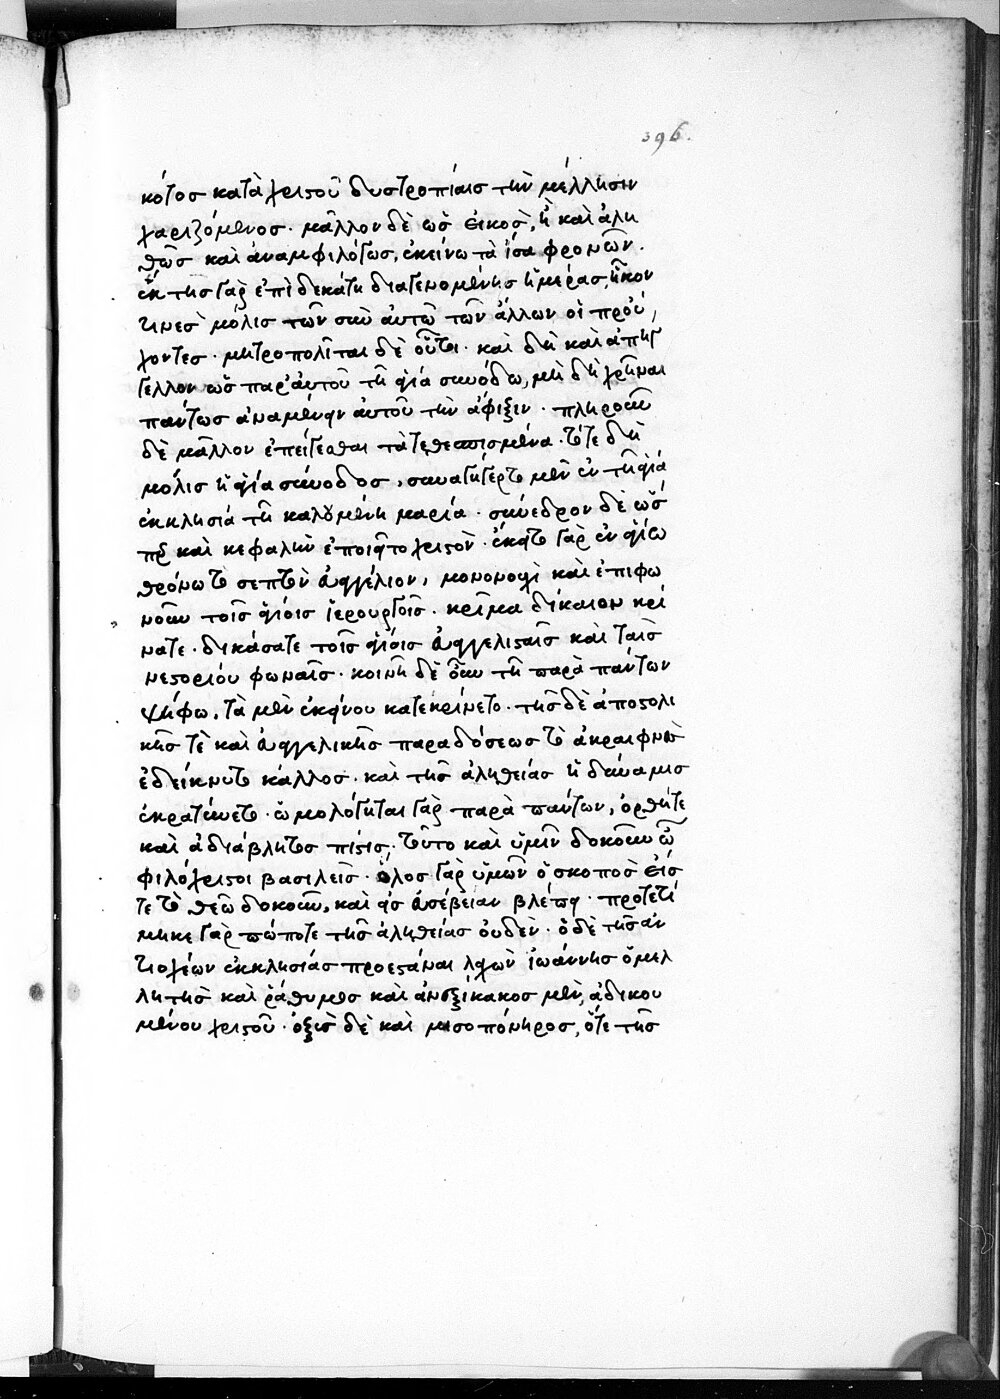 396.
κότος κατὰ χριστοῦ δυστροπίαις τὴν μέλλησιν
χαριζόμενος. μᾶλλον δὲ ὡς εἰκὸς, ἢ καὶ ἀλη
θῶς καὶ ἀναμφιλόγως, ἐκείνω τὰ ἴσα φρονῶν.
ἐκ τῆς γὰρ ἐπὶ δεκάτη διαγενομένης ἡμέρας, ἧκον
τινὲς μόλις τῶν σὺν ἀυτῶ τῶν ἄλλων οἱ πρού,
χοντες. μητροπολῖται δὲ οὗτοι. καὶ δὴ καὶ ἀπήγ
γελλον ὡς παρ' ἀυτοῦ τῆ ἁγία συνόδω, μὴ δὴ χρῆναι
πάντως ἀναμένειν ἀυτοῦ τὴν ἄφιξιν. πληροῦν
δὲ μᾶλλον ἐπείγεσθαι τὰ τεθεσπισμένα. τότε δὴ
μόλις ἡ ἁγία σύνοδος, συναγήγερτο μὲν ἐν τῆ ἁγία
ἐκκλησία τῆ καλουμένη μαρία. σύνεδρον δὲ ὥσ
περ καὶ κεφαλὴν ἐποιεῖτο χριστὸν. ἔκειτο γὰρ ἐν ἁγίω
θρόνω τὸ σεπτὸν ἐυαγγέλιον, μονονουχὶ καὶ ἐπιφω
νοῦν τοῖς ἁγίοις ἱερουργοῖς. κρῖμα δίκαιον κρί
νατε. δικάσατε τοῖς ἁγίοις ἐυαγγελισταῖς καὶ ταῖς
νεστορίου φωναῖς. κοινῆ δὲ οὖν τῆ παρὰ πάντων
ψήφω, τὰ μὲν ἐκείνου κατεκρίνετο. τῆς δὲ ἀποστολι
κῆς τὲ καὶ ἐυαγγελικῆς παραδόσεως τὸ ἀκραιφνὲς
ἐδείκνυτο κάλλος. καὶ τῆς ἀληθείας ἡ δύναμις
ἐκρατύνετο. ὡμολόγηται γὰρ παρὰ πάντων, ὀρθή τε
καὶ ἀδιάβλητος πίστις. τοῦτο καὶ ὑμῖν δοκοῦν ὦ
φιλόχριστοι βασιλεῖς. ὅλος γὰρ ὑμῶν ὁ σκοπὸς εἴς
τε τὸ θεῶ δοκοῦν, καὶ εἰς ἐυσέβειαν βλέπει. προτετί
μηκε γὰρ πώποτε τῆς ἀληθείας ὀυδὲν. ὁ δὲ τῆς ἀν
τιοχέων ἐκκλησίας προεστάναι λαχὼν ἰωάννης ὁ μελ
λητὴς καὶ ῥάθυμος καὶ ἀνεξίκακος μὲν, ἀδικου
μένου χριστοῦ. ὀξὺς δὲ καὶ μισοπόνηρος, ὅτε τῆς